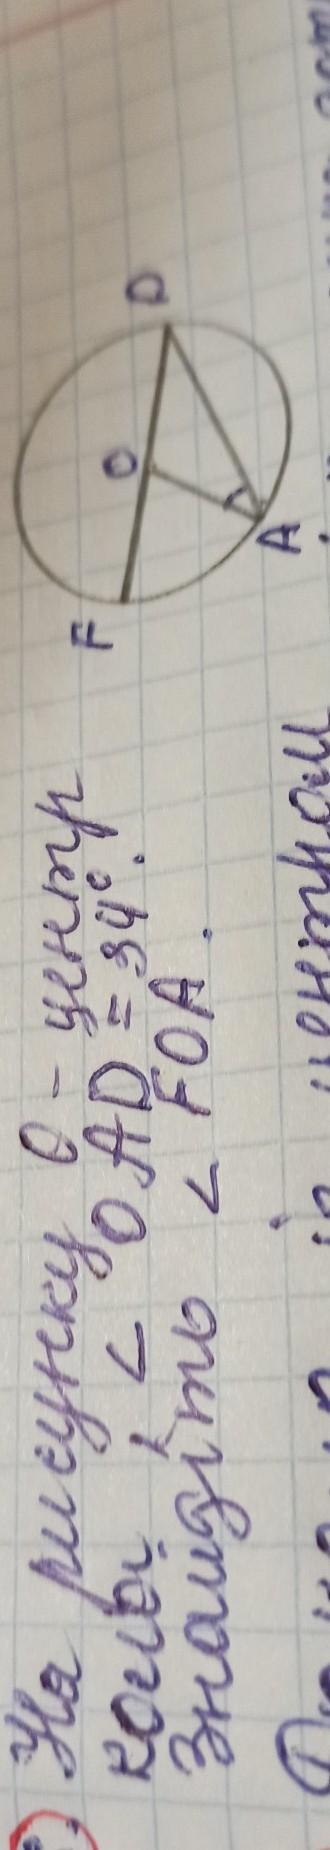 На рисунку О - центр
кола, < OAD = 34°.
Знайдіть < FOA.
F
O
D
A